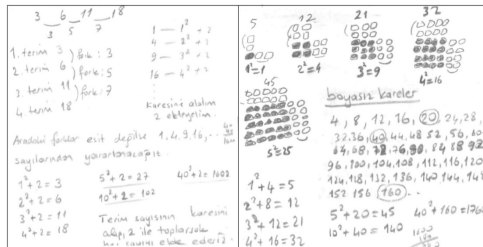 3 6 11 18
3 5 7
1. terim 3
2. terim 6
3. terim 11
4. terim 18
fark: 3
fark: 5
fark: 7
1 — 1² + 2
4 — 2² + 2
9 — 3² + 2
16 — 4² + 2
Karesini alalım
2 ekleyelim
Aradaki farklar eşit değilse 1, 4, 9, 16, ...
sayılarından yararlanacağız
1²+2=3
2²+2=6
3²+2=11
4²+2=18
5²+2=27
10²+2=102
40²+2=1602
Terim sayısının karesini
alıp, 2 ile toplarsak
5
12
21
32
1²=1
2²=4
3²=9
4²=16
45
5²=25
1²+4=5
2²+8=12
3²+12=21
4²+16=32
boyasız kareler
4, 8, 12, 16, 20, 24, 28,
32, 36, 40, 44, 48, 52, 56, 60
64, 68, 72, 76, 80, 84 88 92
96, 100, 104, 108, 112, 116, 120
124, 128, 132, 136, 140, 144, 148
152 156 160
5²+20=45
10²+40=140
40²+160=1760